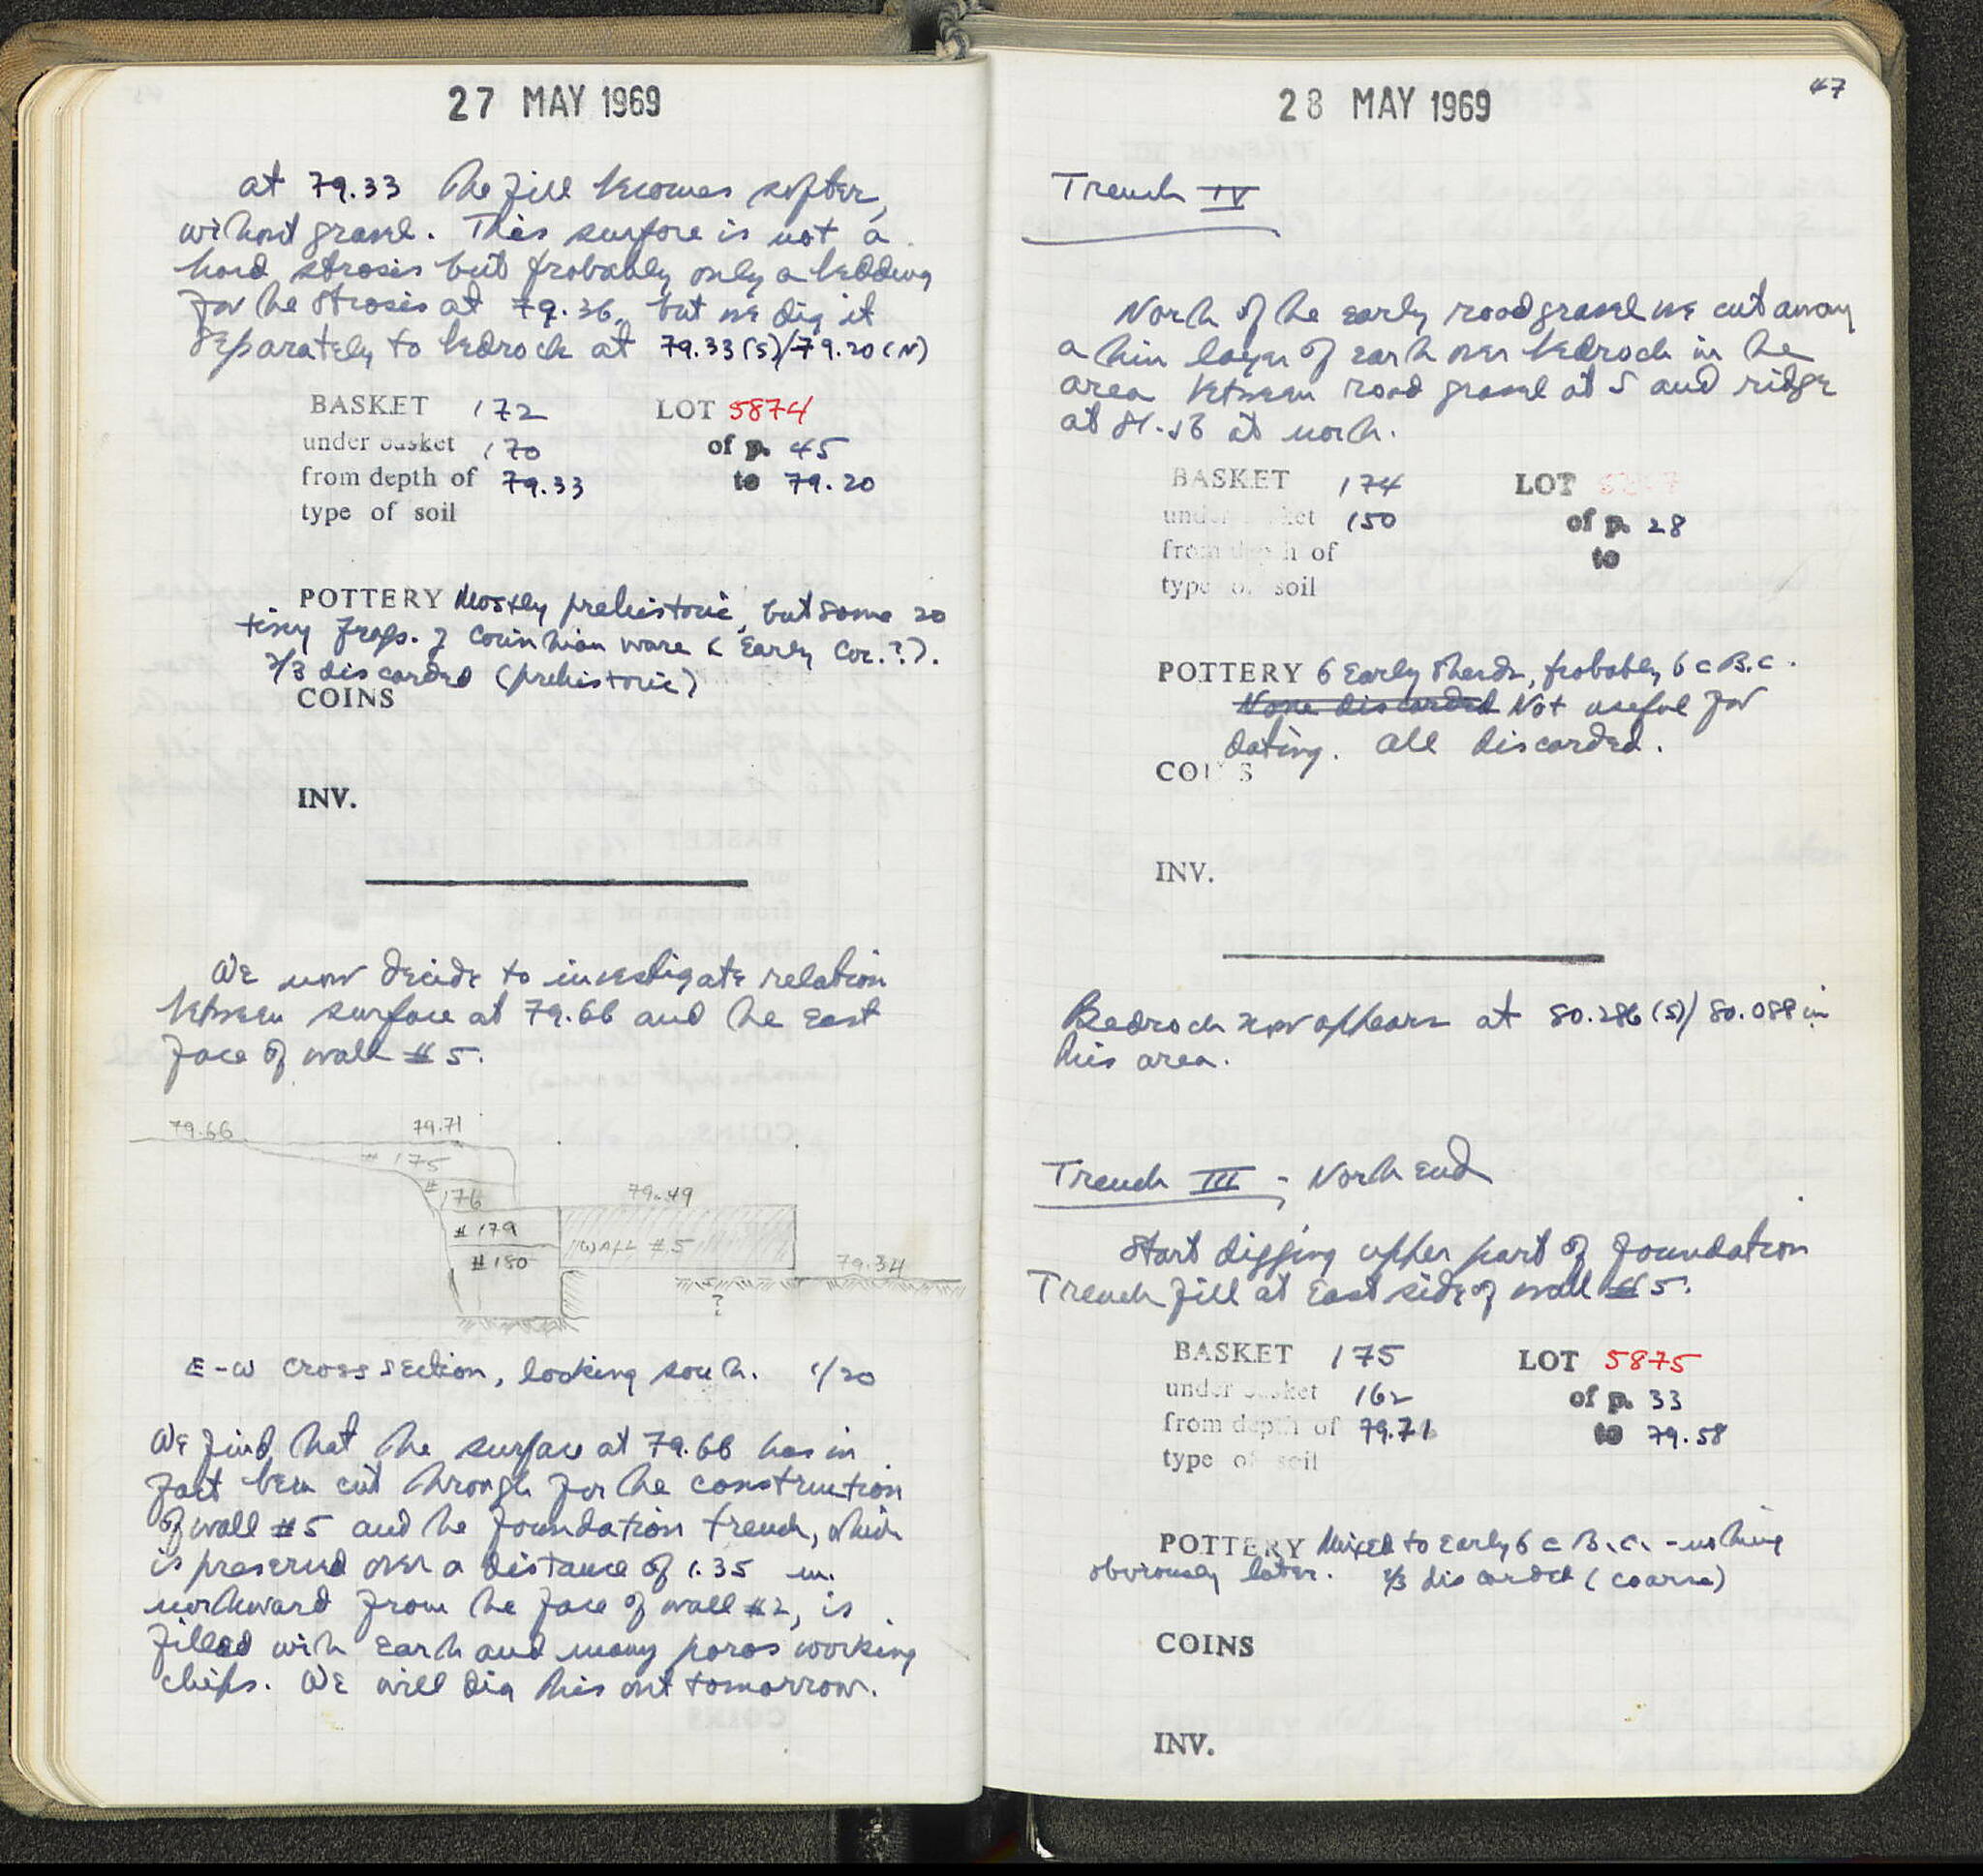 27 MAY 1969
at 79.33 the fill becomes softer,
without gravel. This surface is not a
hard strosis but probably only a bedding
for the strosis at 79.36, but we dig it
separately to bedrock at 79.33(S)/79.20(N)
BASKET 172 LOT 5874
under basket 170 of p. 45
from depth of 79.33 to 79.20
type of soil
POTTERY Mostly prehistoric, but some 20
tiny frags. of Corinthian ware (Early Cor.?).
2/3 discarded (prehistoric)
COINS
INV.
We now decide to investigate relation
between surface at 79.66 and the East
face of wall #5.
79.66 79.71
# 175
# 176 79.49
# 179
WALL #5
# 180 79.34
?
E-W cross section, looking south. 1/20
We find that the surface at 79.66 has in
fact been cut through for the construction
of wall #5 and the foundation trench, which
is preserved over a distance of 1.35 m.
northward from the face of wall #2, is
filled with earth and many poros working
chips. We will dig this out tomorrow.
47
28 MAY 1969
Trench IV
North of the early road gravel we cut away
a thin layer of earth over bedrock in the
area between road gravel at S and ridge
at north.
BASKET 174 LOT
under basket 150 of p. 28
from depth of to
type of soil
POTTERY 6 Early sherds, probably 6 c B.C.
None discarded Not useful for
dating. All discarded.
COINS
INV.
Bedrock now appears at 80.286(S)/80.088 in
this area.
Trench III - North end
Start digging upper part of foundation
Trench fill at East side of wall #5.
BASKET 175 LOT 5875
under basket 162 of p. 33
from depth of 79.71 to 79.58
type of soil
POTTERY Mixed to early 6 c B.C. - nothing
obviously later. discarded (coarse)
COINS
INV.